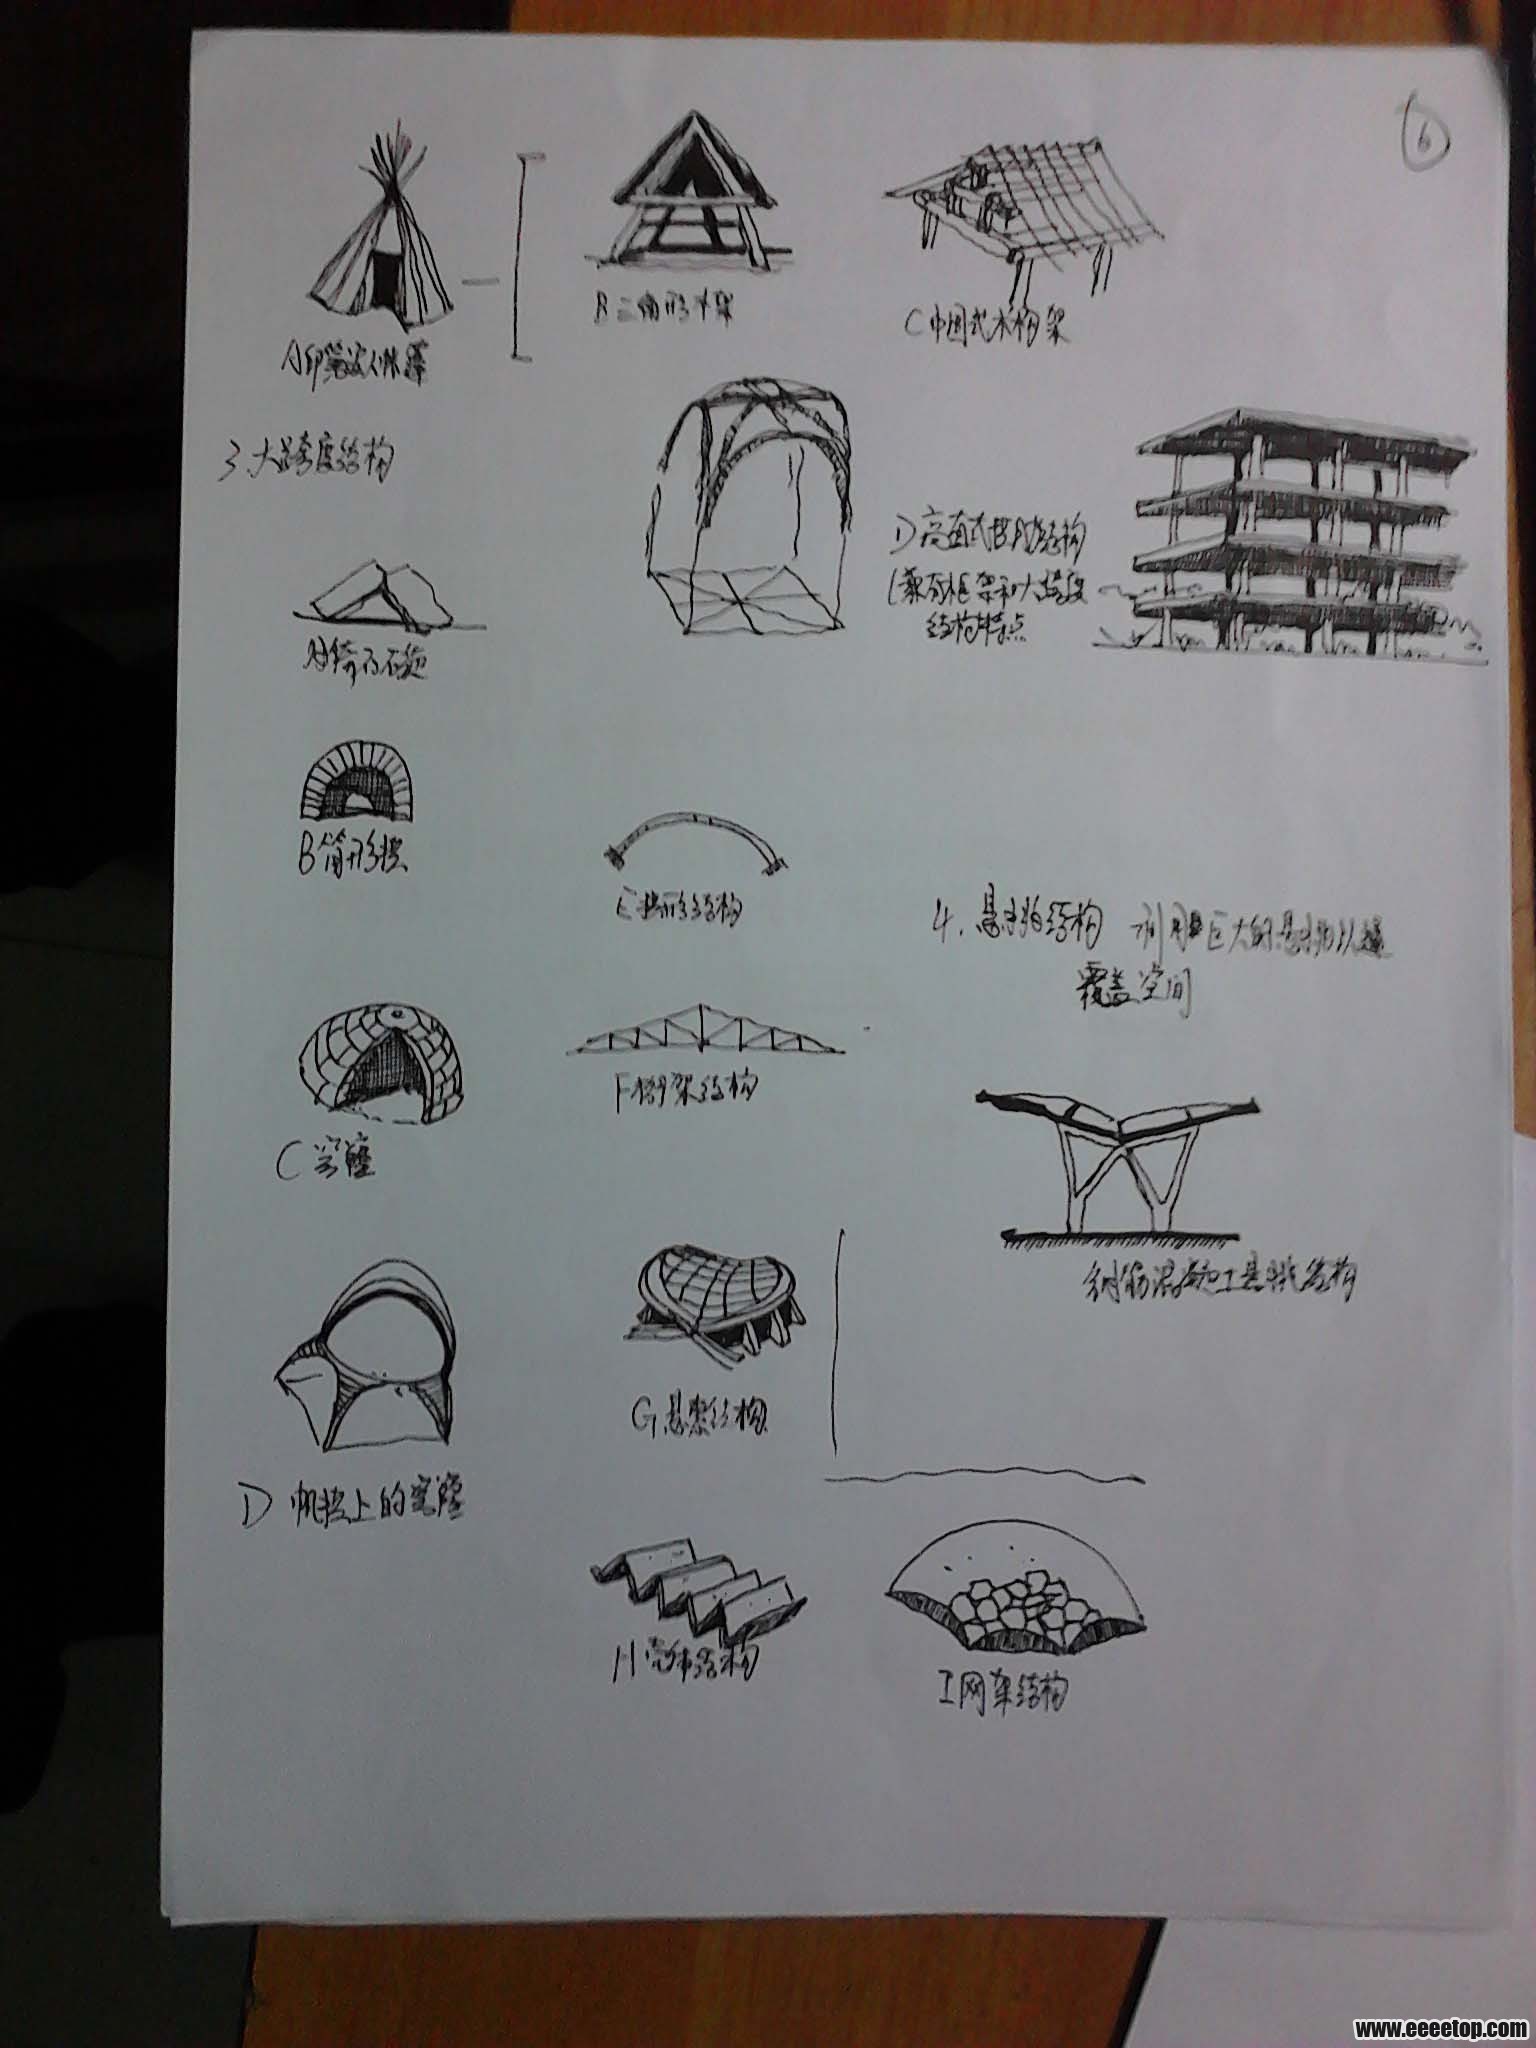 6
A 印第安人帐篷
B 三角形木架
C 中国式木构架
3. 大跨度结构
D 高直式骨肋结构
(兼有框架和大跨度
结构特点
A 倚石
B 筒形拱
E 拱形结构
4. 悬挑结构 利用巨大的悬挑以
覆盖空间
F 桁架结构
C 穹窿
钢筋混凝土悬挑结构
G 悬索结构
D 帆拱上的穹窿
H 壳体结构
I 网架结构
www.eeeetop.com